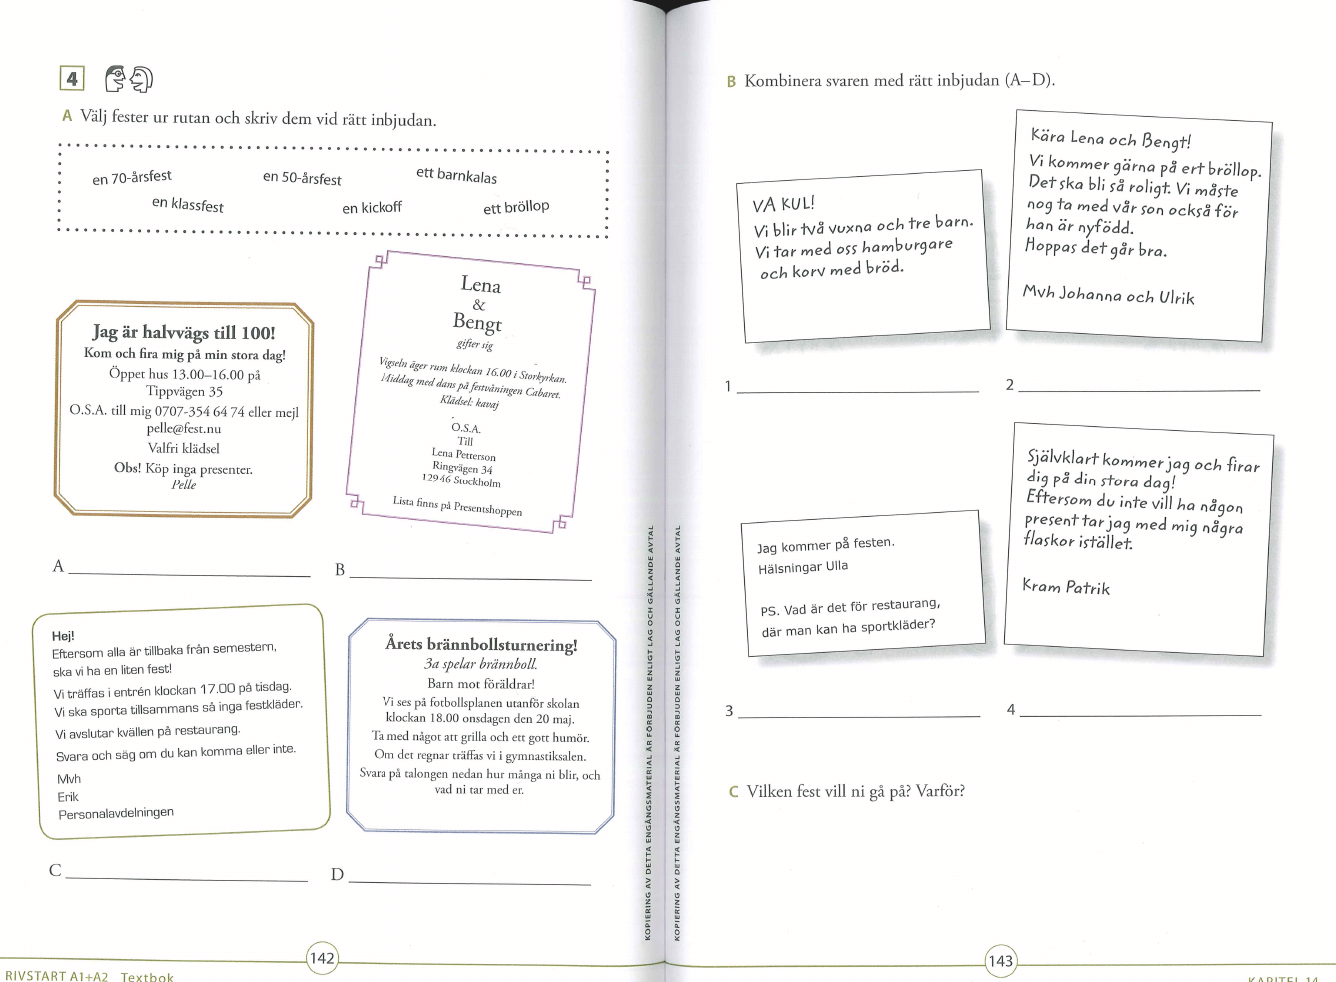 4
A Välj fester ur rutan och skriv dem vid rätt inbjudan.
en 70-årsfest
en 50-årsfest
ett barnkalas
en klassfest
en kickoff
ett bröllop
Jag är halvvägs till 100!
Kom och fira mig på min stora dag!
Öppet hus 13.00–16.00 på
Tippvägen 35
O.S.A. till mig 0707-354 64 74 eller mejl
pelle@fest.nu
Valfri klädsel
Obs! Köp inga presenter.
Pelle
A
Lena
&
Bengt
gifter sig
Vigseln äger rum klockan 16.00 i Storkyrkan.
Middag med dans på festvåningen Cabaret.
Klädsel: kavaj
O.S.A.
Till
Lena Petterson
Ringvägen 34
129 46 Stockholm
Lista finns på Presentshoppen
B
Hej!
Eftersom alla är tillbaka från semestern,
ska vi ha en liten fest!
Vi träffas i entrén klockan 17.00 på tisdag.
Vi ska sporta tillsammans så inga festkläder.
Vi avslutar kvällen på restaurang.
Svara och säg om du kan komma eller inte.
Mvh
Erik
Personalavdelningen
C
Årets brännbollsturnering!
3a spelar brännboll.
Barn mot föräldrar!
Vi ses på fotbollsplanen utanför skolan
klockan 18.00 onsdagen den 20 maj.
Ta med något att grilla och ett gott humör.
Om det regnar träffas vi i gymnastiksalen.
Svara på talongen nedan hur många ni blir, och
vad ni tar med er.
D
KOPIERING AV DETTA ENGÅNGSMATERIAL ÄR FÖRBJUDEN ENLIGT LAG OCH GÄLLANDE AVTAL
142
RIVSTART A1+A2 Textbok
KOPIERING AV DETTA ENGÅNGSMATERIAL ÄR FÖRBJUDEN ENLIGT LAG OCH GÄLLANDE AVTAL
B Kombinera svaren med rätt inbjudan (A–D).
VA KUL!
Vi blir två vuxna och tre barn.
Vi tar med oss hamburgare
och korv med bröd.
1
Kära Lena och Bengt!
Vi kommer gärna på ert bröllop.
Det ska bli så roligt. Vi måste
nog ta med vår son också för
han är nyfödd.
Hoppas det går bra.
Mvh Johanna och Ulrik
2
Jag kommer på festen.
Hälsningar Ulla
PS. Vad är det för restaurang,
där man kan ha sportkläder?
3
Självklart kommer jag och firar
dig på din stora dag!
Eftersom du inte vill ha någon
present tar jag med mig några
flaskor istället.
Kram Patrik
4
C Vilken fest vill ni gå på? Varför?
143
KAPITEL 14